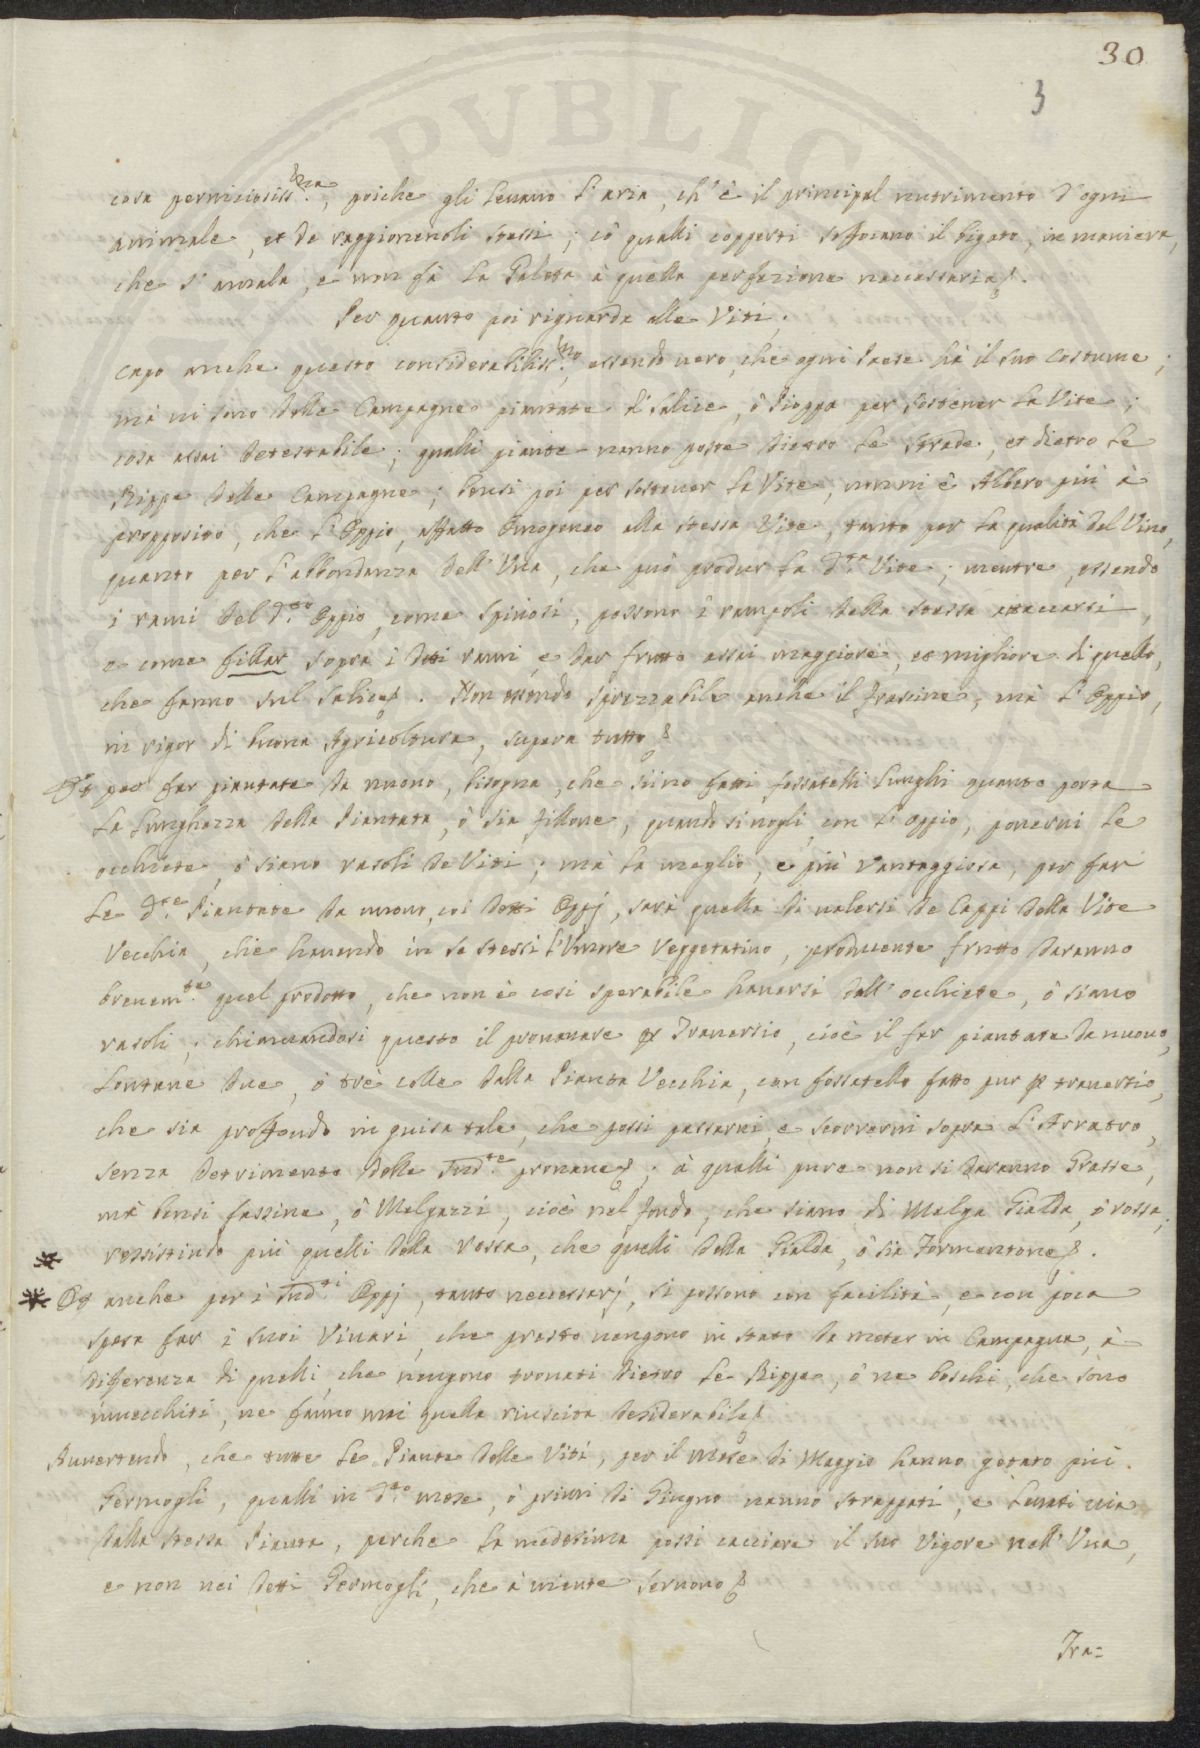 30
3
PVBLIC
cosa perniciosiss:ma, poiche gli levano l'aria, ch'è il principal nutrimento d'ogni
animale, et de raggionevoli stessi; cò qualli copperti soffocano il bigato, in maniera,
che s'amala, e non fà la Galeta à quella perfezione neccessaria.
Per quanto poi riguarda alle Viti;
capo anche questo considerabiliss:mo, essendo vero, che ogni Paese hà il suo costume;
mà vi sono delle Campagne piantate di Salice, ò Pioppa per sostener la Vite;
cosa assai detestabile; qualli piante vanno poste dietro le strade, et dietro le
Rippe delle Campagne; bensi poi per sostener la Vite, non vi è Albero più à
propposito, che l'Oppio, affatto Omogeneo alla stessa Vite, tanto per la qualità del Vino,
quanto per l'abbondanza dell'Vua, che può produr la d:ta Vite; mentre, essendo
i rami del d:to Oppio, come spinosi, possono i rampoli della stessa attaccarsi,
e come fillar sopra i detti rami, e dar frutto assai maggiore, et migliore di quello,
che fanno sul Salice. Non essendo sprezzabile anche il frassine, mà l'Oppio,
in rigor di buona Agricoltura, supera tutto
Et per far piantate da nuouo, bisogna, che siino fatti fossatelli lunghi quanto porta
la lunghezza della Piantata, ò sia fillone, quando si vogli, con l'Oppio, ponervi le
occhiete, ò siano rasoli de Viti; mà la meglio, e più vantaggiosa, per far
le d:te Piantate da nuouo, coi detti Oppj, sarà quella di valersi de Cappi della Vite
Vecchia, che havendo in se stessi l'Vmore veggetativo, producente frutto daranno
brevem:te quel prodotto, che non è così sperabile haversi dall'occhiete, ò siano
rasoli; chiamandosi questo il provanare p Traversio, cioè il far piantate da nuouo,
lontane due, ò trè colle dalla Pianta Vecchia, con fossatello fatto pur p traversio,
che sia proffondo in guisa tale, che possi passarvi, e scorrervi sopra l'Arratro,
senza detrimento delle sud:te provane; à qualli pure non si daranno Grasse,
mà bensi fassine, ò Melgazzi, cioè nel fondo, che siano di Melga Gialda, ò rossa,
ressistindo più quelli della rossa, che quelli della Gialda, ò sia Formentone.
Et anche per i sud:ti Oppj, tanto necessarj, si possono con facilità, e con poca
spesa far i suoi Vivari, che presto vengono in stato da meter in Campagna, à
differenza di quelli, che vengono trovati dietro le Rippe, ò ne boschi, che sono
invecchiti, ne fanno mai quella riuscita desiderabile
Avvertendo, che tutte le Piante delle Viti, per il mese di Maggio hanno getato più
Germogli, qualli in d:to mese, ò primi di Giugno vanno strappati, e levati via
dalla stessa Pianta, perche la medesima possi cacciare il suo Vigore nell'Vua,
e non nei detti Germogli, che à niente servono
Tra=